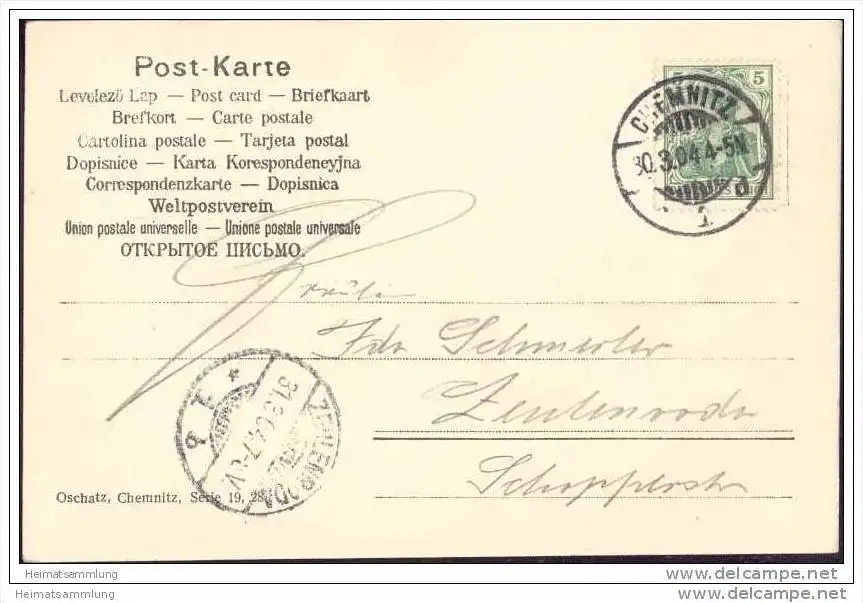 Post-Karte
Levelező Lap — Post card — Briefkaart
Brefkort — Carte postale
Cartolina postale — Tarjeta postal
Dopisnice — Karta Korespondeneyjna
Correspondenzkarte — Dopisnica
Weltpostverein
Union postale universelle — Unione postale universale
ОТКРЫТОЕ ПИСЬМО.
5 5
CHEMNITZ
30.3.04 4-5N
1 d
Fräulein
Ida Schmerler
Zeulenroda
Schopperstr
ZEULENRODA
31.3.04.7-8V.
Oschatz, Chemnitz, Serie 19, 28
Heimatsammlung
Heimatsammlung
www.delcampe.net
www.delcampe.net